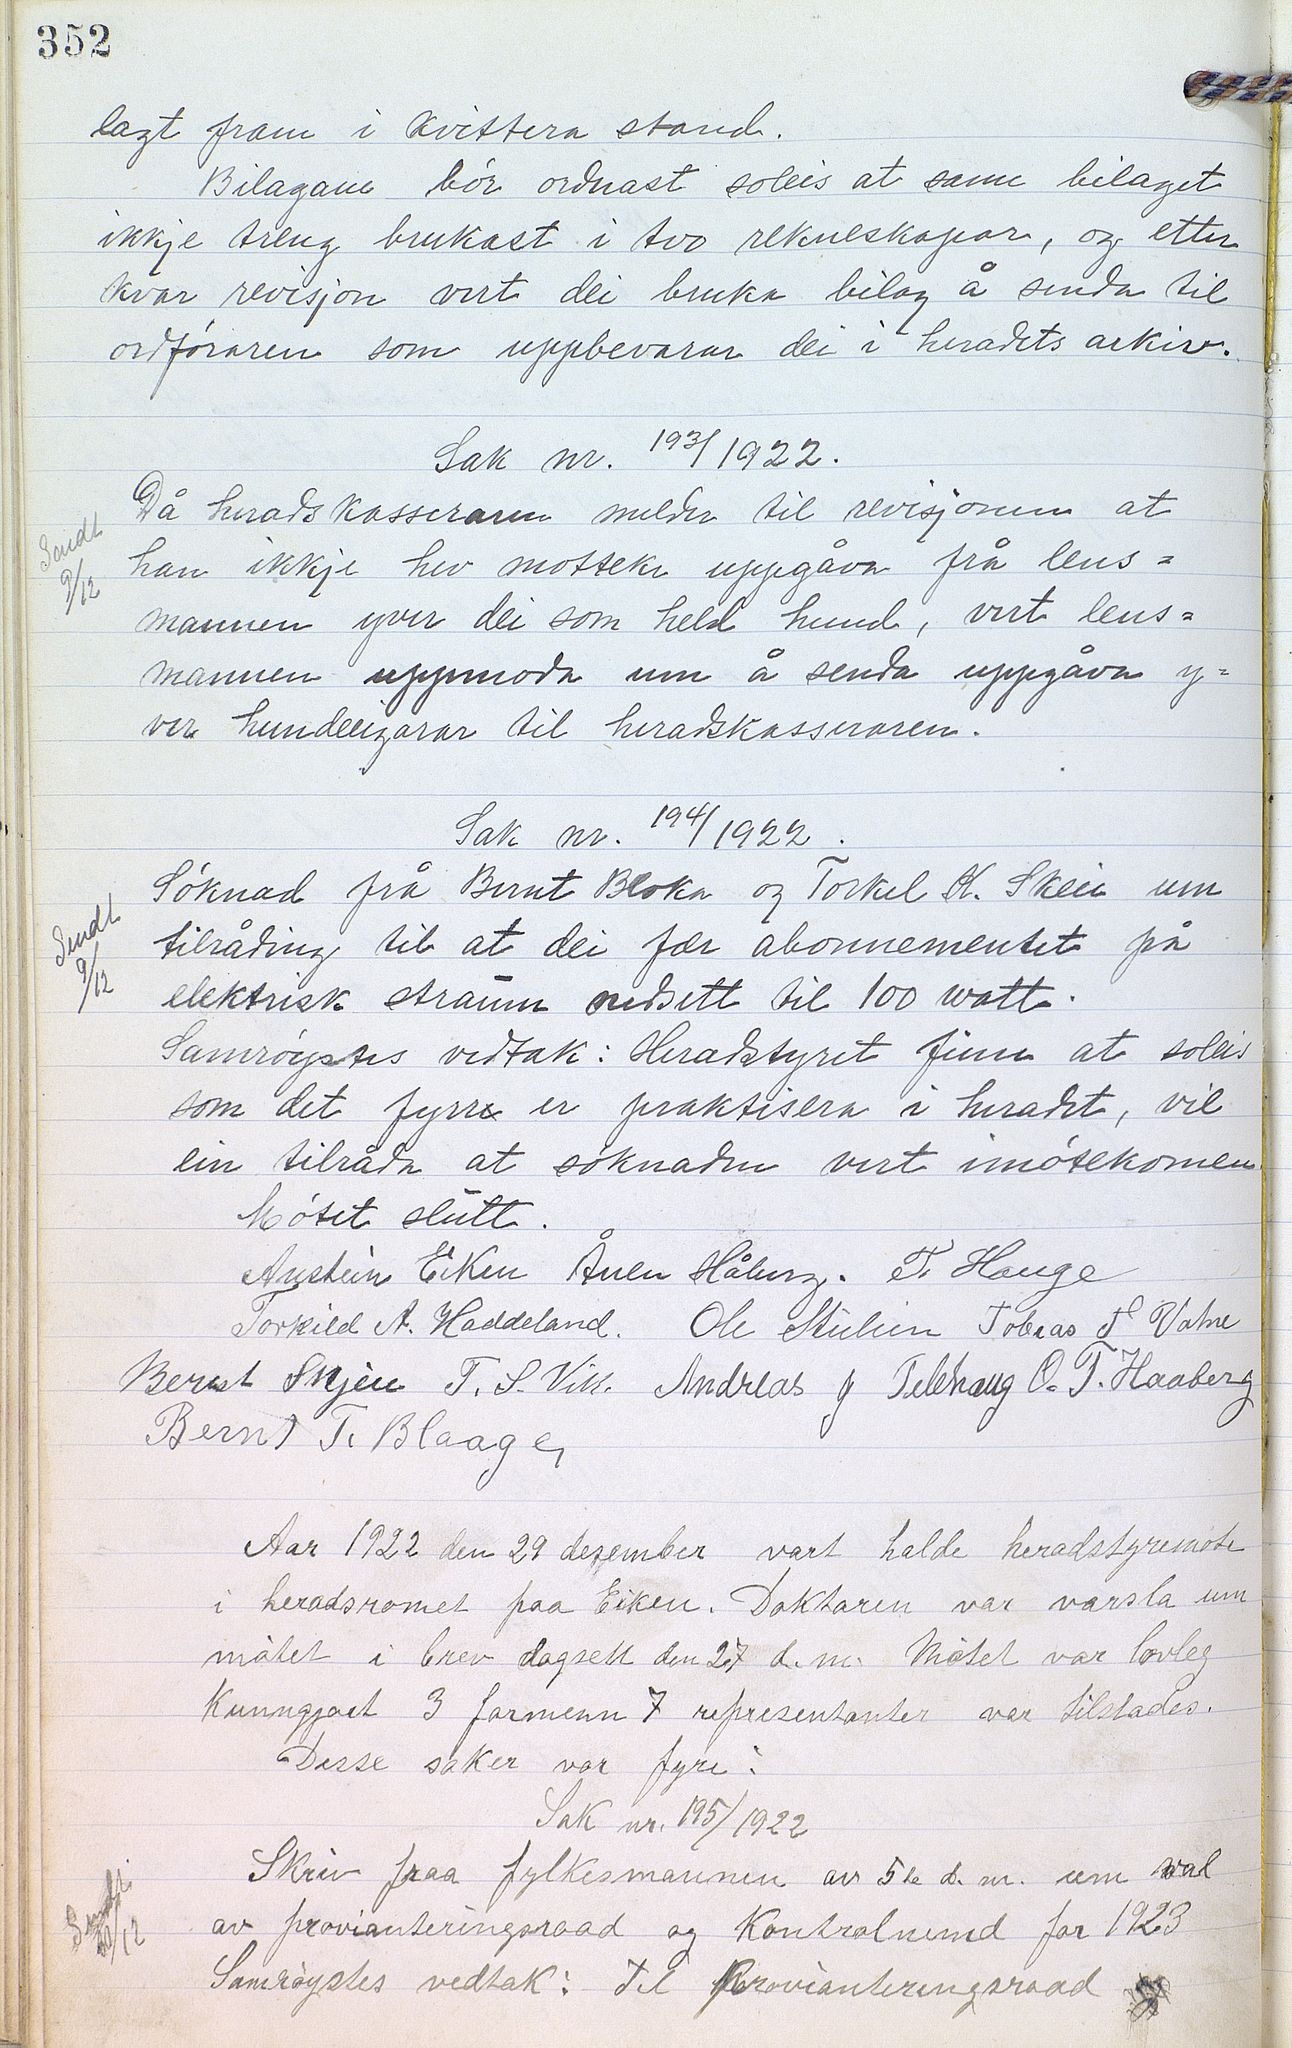 352
lagt fram i kvittera stand.
Bilagane bör ordnast soleis at same bilaget
ikkje treng brukast i tvo rekneskapar, og etter
kvar revisjon vert dei bruka bilag å senda til
ordföraren som uppbevarar dei i heradets arkiv.
Sak nr. 193/1922.
Då heradskasseraren melder til revisjonen at
Sendt
9/12
han ikkje hev motteke uppgåva frå lens=
mannen yver dei som held hund, vert lens=
mannen uppmoda um å senda uppgåva y=
ver hundeeigarar til heradskasseraren.
Sak nr. 194/1922.
Söknad frå Bernt Bloka og Torkel K. Skeie um
Sendt
9/12
tilråding til at dei fær abonnementet på
elektrisk straum nedsett til 100 watt.
Samröystes vedtak: Heradstyret finn at soleis
som det fyrr er praktisera i heradet, vil
ein tilråda at söknaden vert imötekomen.
Mötet slutt.
Austein Eiken Ånen Håberg. T. Hauge
Torkild A. Haddeland. Ole Tobias T Vatne
Bernt Skjeie T. S. Vik. Andreas J Telehaug O. T. Haaberg
Bernt T. Blaage,
Aar 1922 den 29 desember vart halde heradstyremöte
i heradsromet paa Eiken. Doktaren var varsla um
mötet i brev dagsett den 27 d.m. Mötet var lovleg
kunngjort 3 formenn 7 representanter var tilstades.
Desse saker var fyre:
Sak nr. 195/1922
Skriv fraa fylkesmannen av 5te d. m. um val
Sendt
30/12
av provianteringsraad og kontrolnemd for 1923
Samröystes vedtak: Til Provianteringsraad